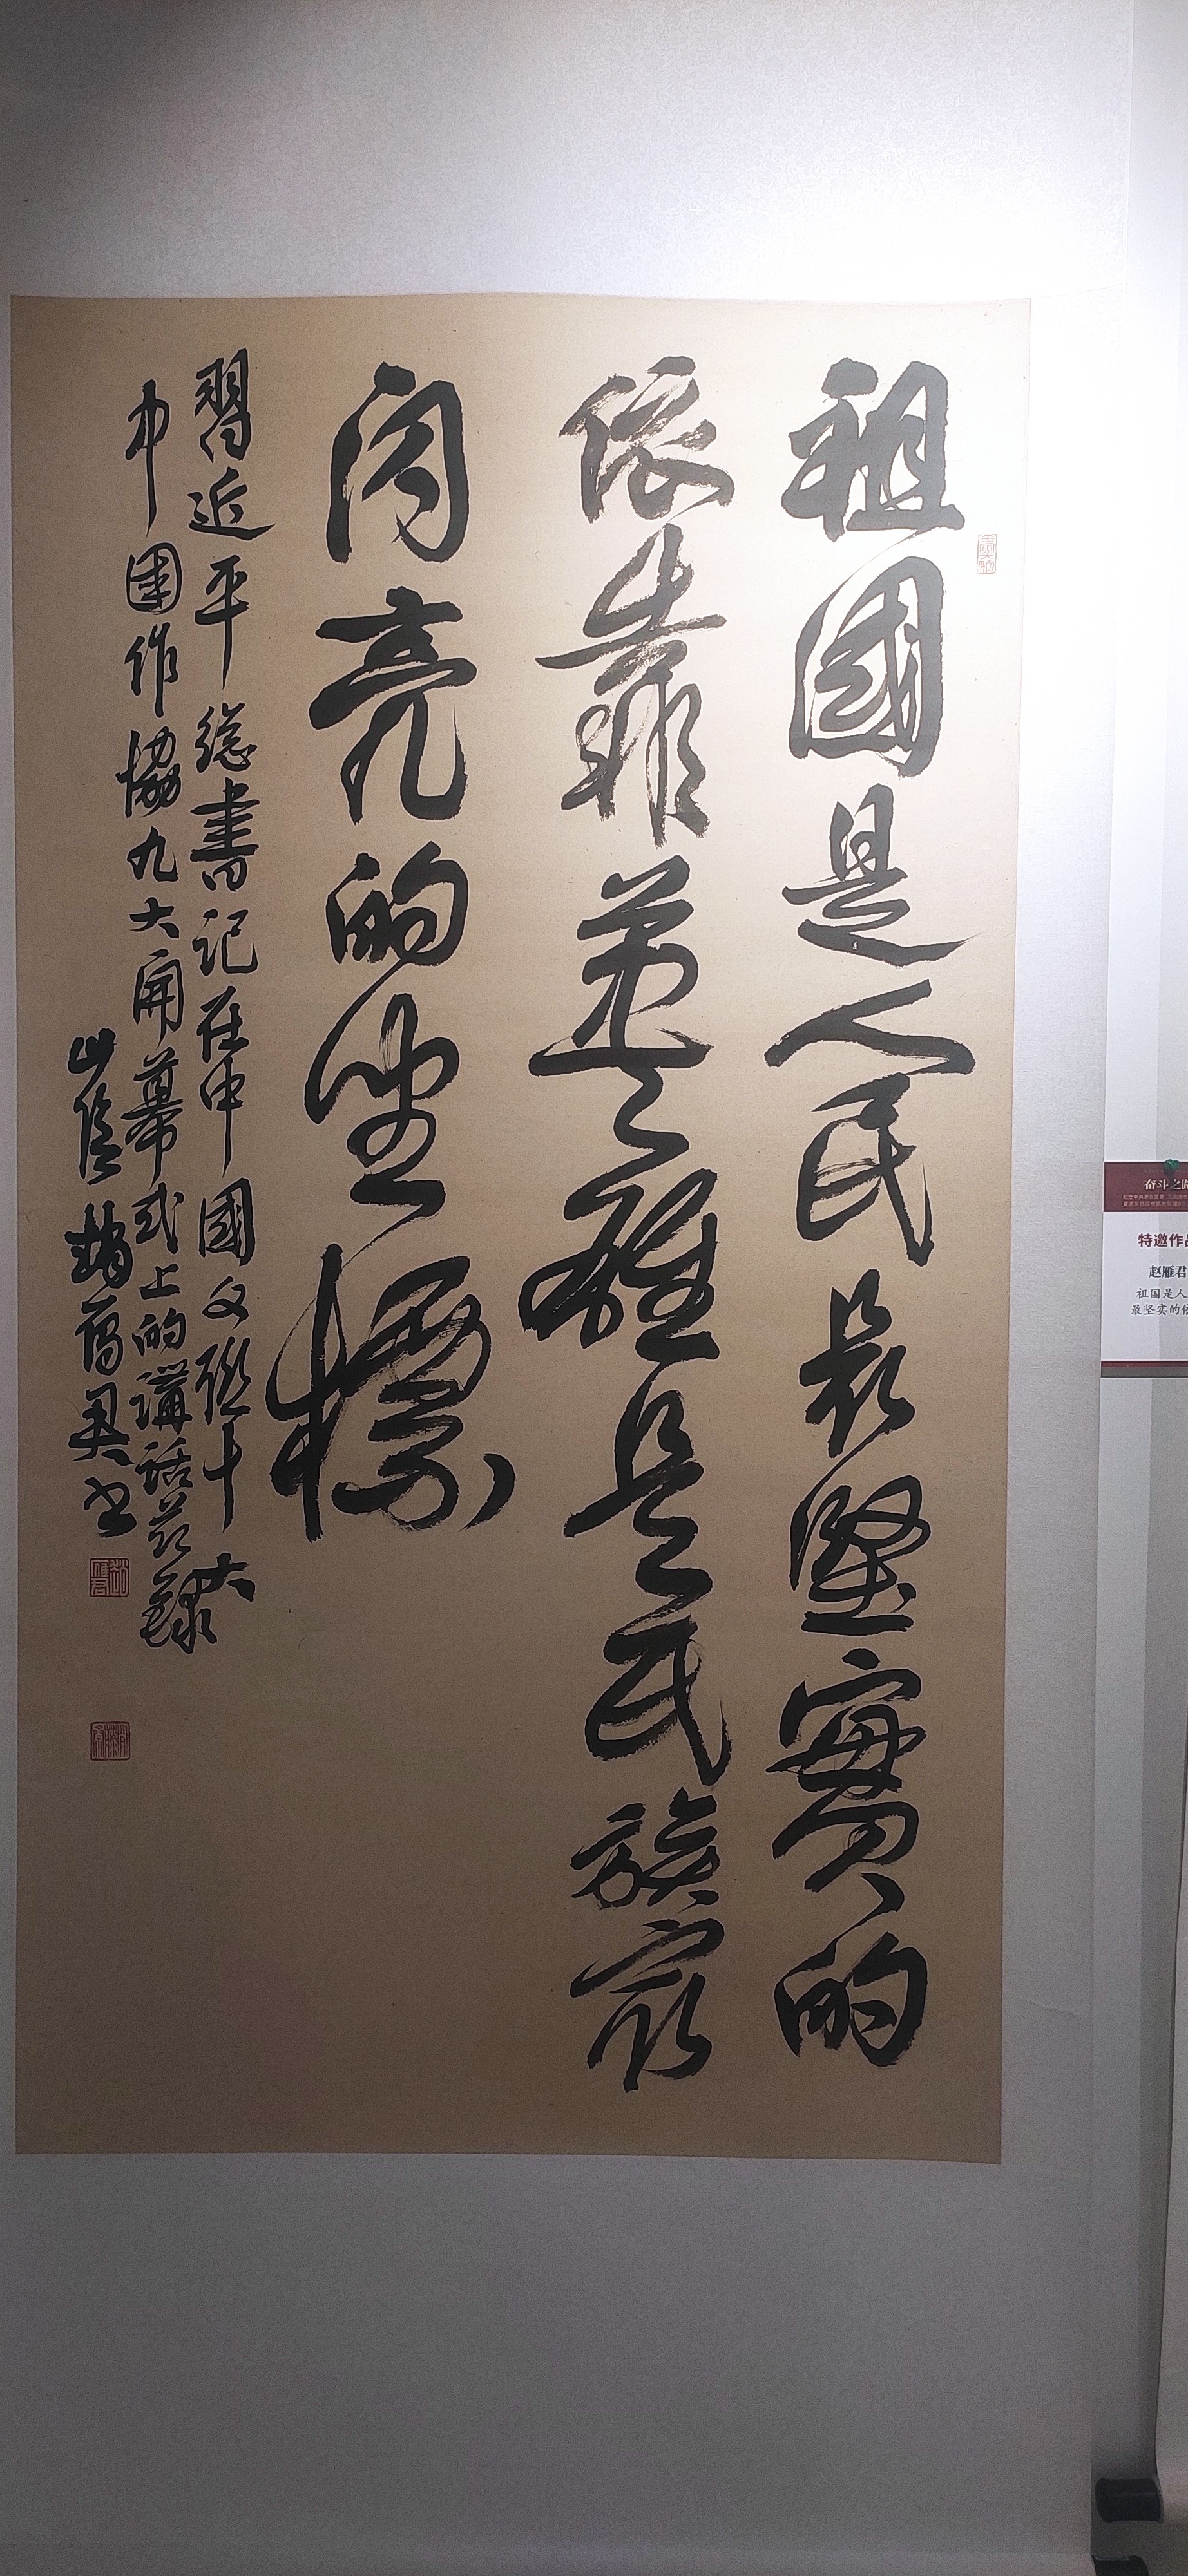 祖國是人民最堅實的
依靠英雄是民族最
闪亮的坐標
習近平總書記在中國文聯十大
中國作協九大開幕式上的講話节錄
赵雁君书
奋斗之路
特邀作品
赵雁君
祖国是人
最坚实的依